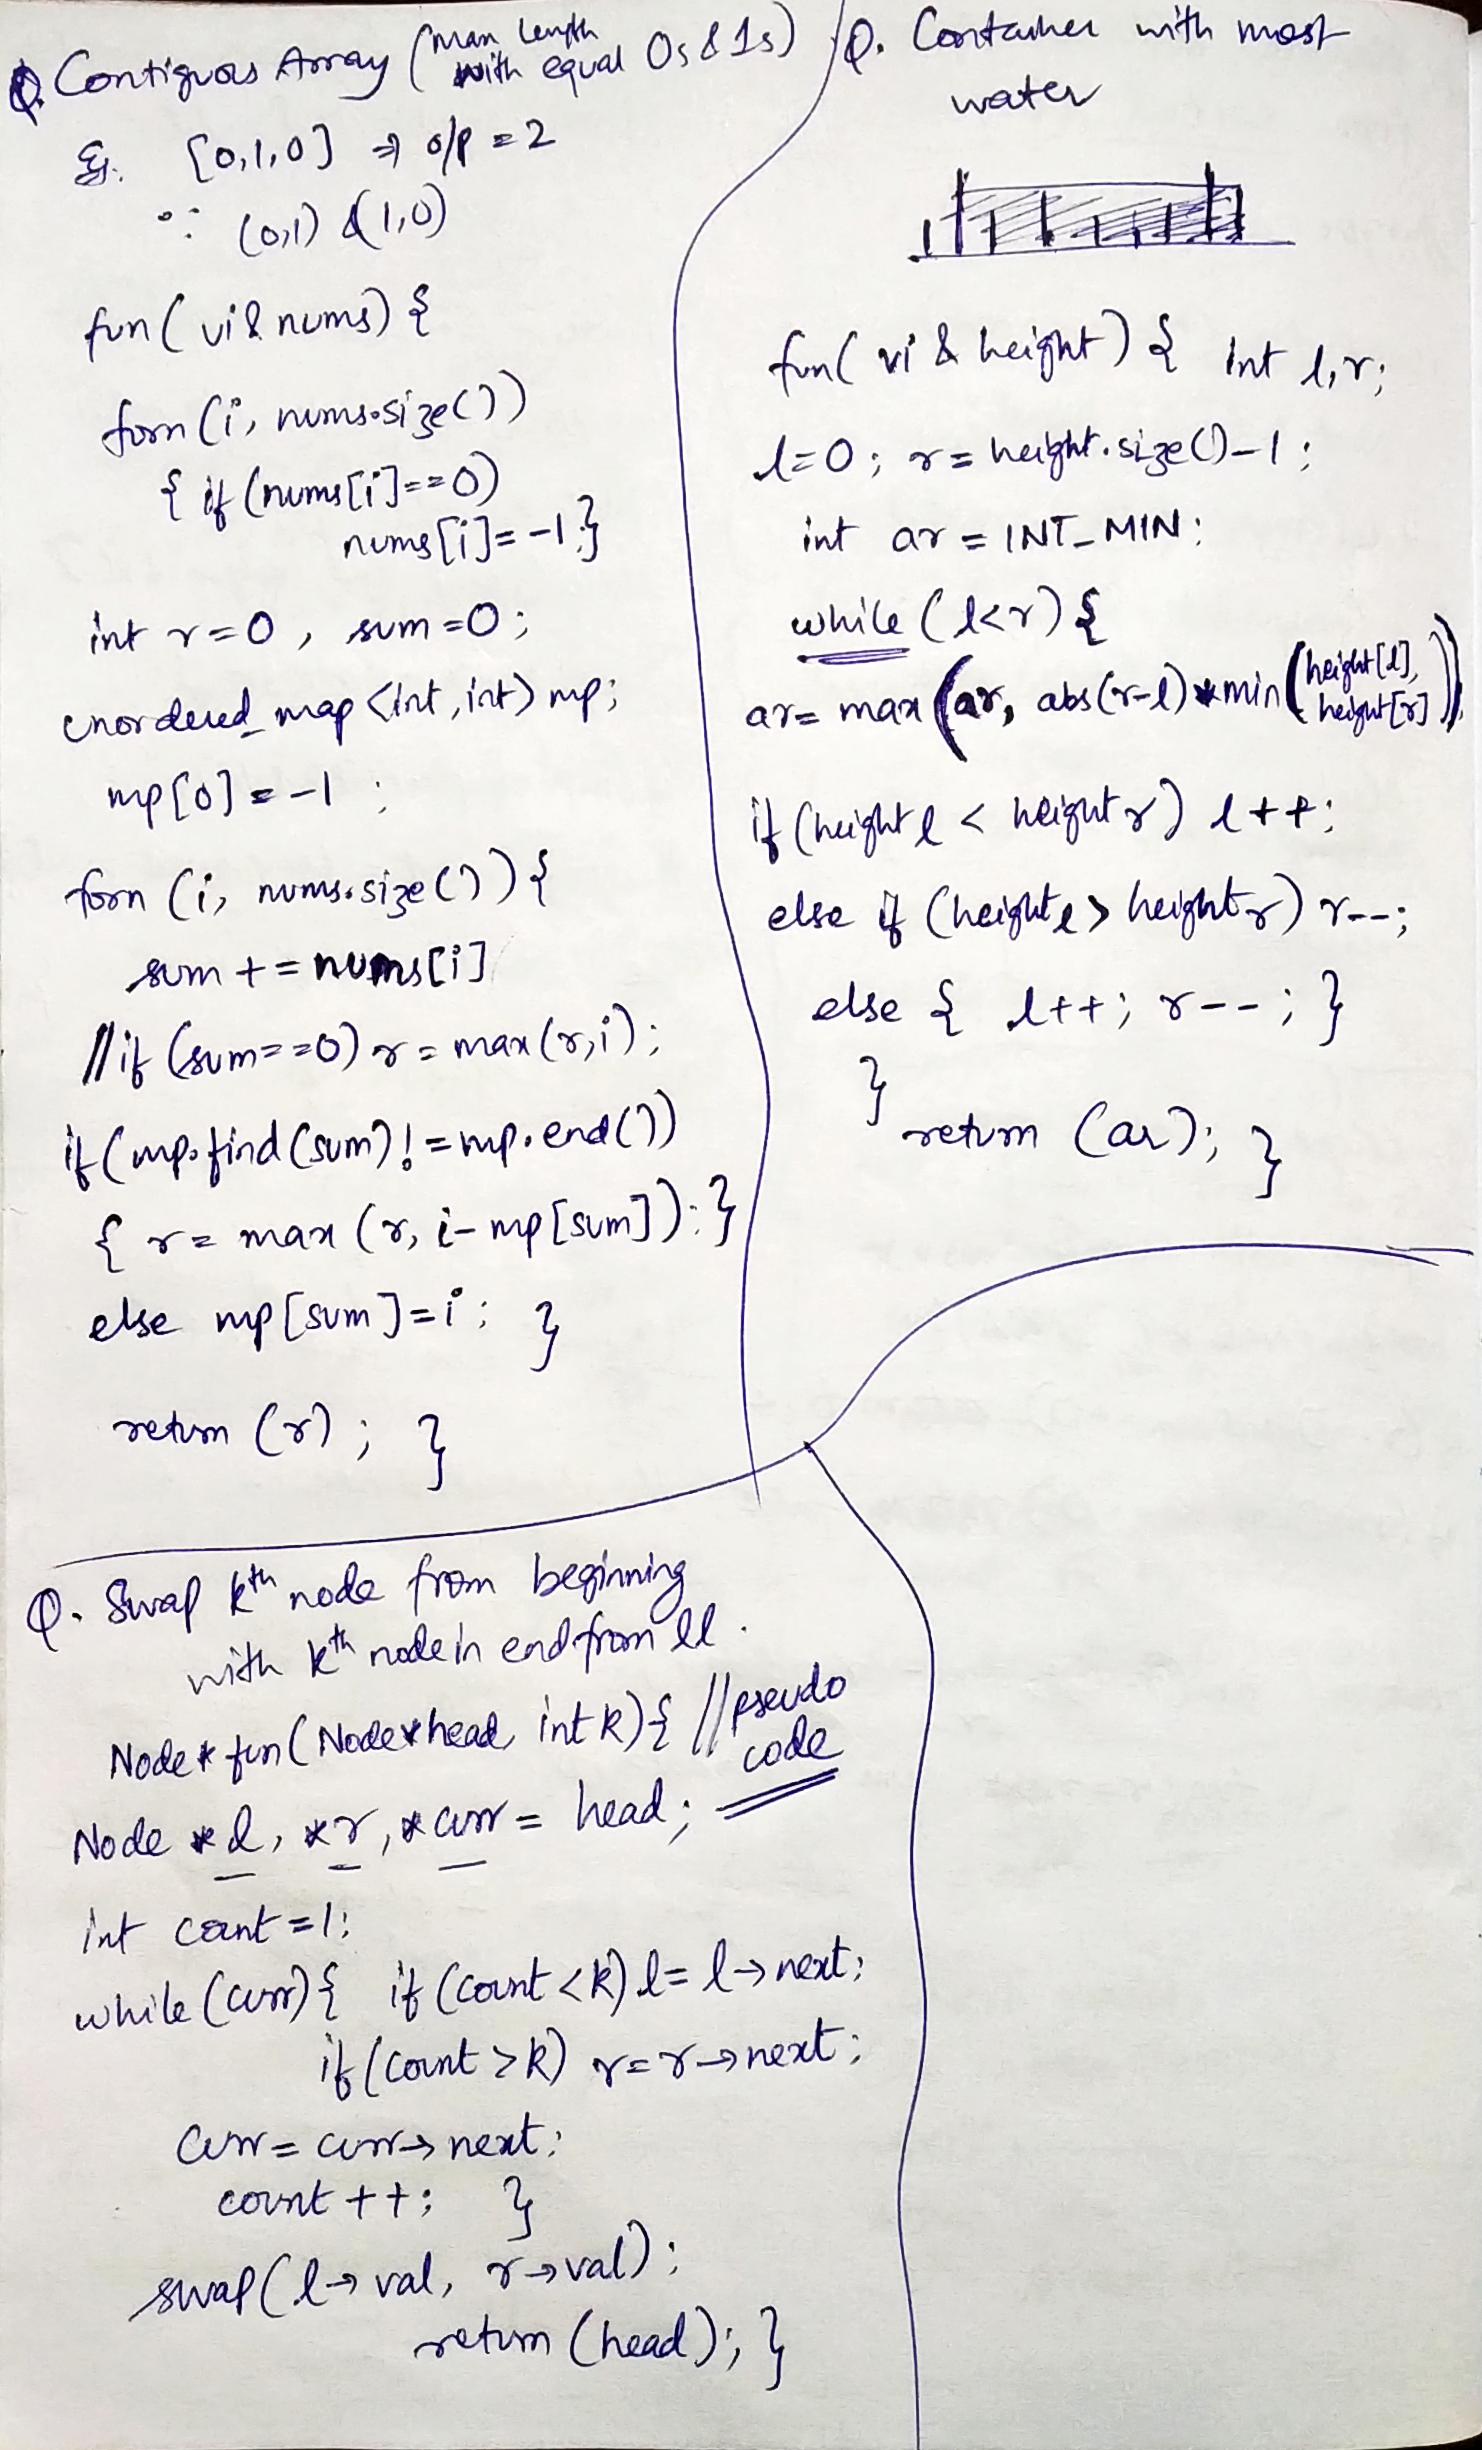 Q. Contiguous Array (max length
with equal 0s & 1s)
Eg. [0,1,0] ⇒ o/p = 2
∵ (0,1) & (1,0)
fun( vi & nums) {
forn (i, nums.size())
{ if (nums[i]==0)
nums[i]= -1;}
int r=0, sum=0;
unordered_map <int, int> mp;
mp[0] = -1 ;
forn (i, nums.size()) {
sum += nums[i]
// if (sum==0) r = max(r,i);
if (mp.find(sum) != mp.end())
{ r = max (r, i- mp[sum]); }
else mp[sum]=i; }
return (r) ; }
Q. Container with most
water
fun( vi & height) { int l,r;
l=0; r= height.size()-1;
int ar = INT_MIN;
while (l<r) {
ar= max (ar, abs(r-l) * min (height[l],
height[r]));
if (height l < height r) l++;
else if (height l > height r) r--;
else { l++; r--; }
}
return (ar); }
Q. Swap kth node from beginning
with kth node in end from ll.
Node * fun( Node * head, int k) { // pseudo
code
Node *l, *r, *curr = head;
int count =1;
while (curr) { if (count < k) l= l→next;
if (count > k) r=r→next;
curr= curr→next;
count ++; }
swap( l→val, r→val);
return (head); }